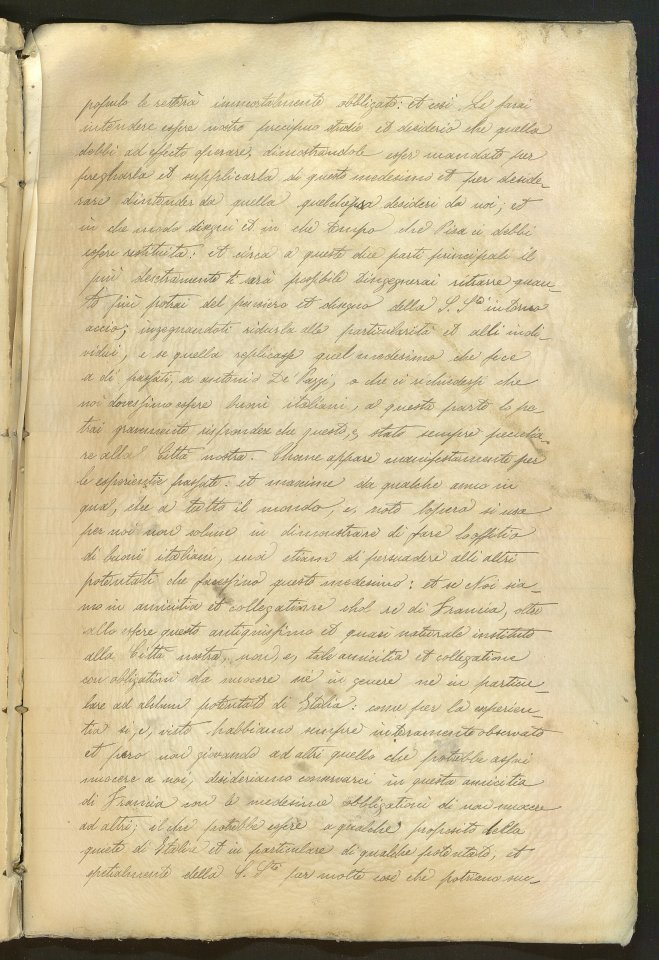 populo le resterà immortalmente obbligato: et così Le farai
intendere essere nostro precipuo studio et desiderio che quella
debbi ad effecto operare, dimostrandole esser mandato per
pregharla et supplicarla di questo medesimo et per deside-
rare d'intender da quella qualchosa desideri da noi; et
in che modo disegni et in che tempo che Pisa ci debbi
essere restituita: et circa a queste due parti principali il
più dextramente ti sarà possibile t'ingegnerai ritrarre quan-
to più potrai del pensiero et disegno della S. S.tà intorno
acciò; ingegnandoti ridurla alle particularità et alli indi-
vidui; e se quella replicasse quel medesimo che fece
a dì passati, a Antonio De' Pazzi, o che ci richiedessi che
noi dovessimo essere buoni italiani, a questa parte lo po-
trai gravemente rispondere che questo, è, stato sempre peculia-
re alla Città nostra. Chome appare manifestamente per
le experientie passate: et maxime da qualche anno in
qua, che a tutto il mondo, è, noto l'opera si usa
per noi non solum in dimostrare di fare l'offitio
di buoni italiani, ma etiam di persuadere alli altri
potentati che facessino questo medesimo: et se Noi sia-
mo in amicitia et collegatione chol re di Francia, oltre
allo essere questo antiquissimo et quasi naturale instituto
alla Città nostra, non, è, tale amicitia et collegatione
con obligationi da nuocere né in genere né in particu-
lare ad alchun potentato di Italia: come per la experien-
tia si, è, visto habbiamo sempre interamente observato
et però non giovando ad altri quello che potrebbe assai
nuocere a noi, desideriamo conservarci in questa amicitia
di Francia con le medesime obbligationi di non nuocere
ad altri; il che potrebbe essere a qualche proposito della
quiete di Italia et in particulare di qualche potentato, et
spetialmente della S. S.tà per molte cose che potriano suc-